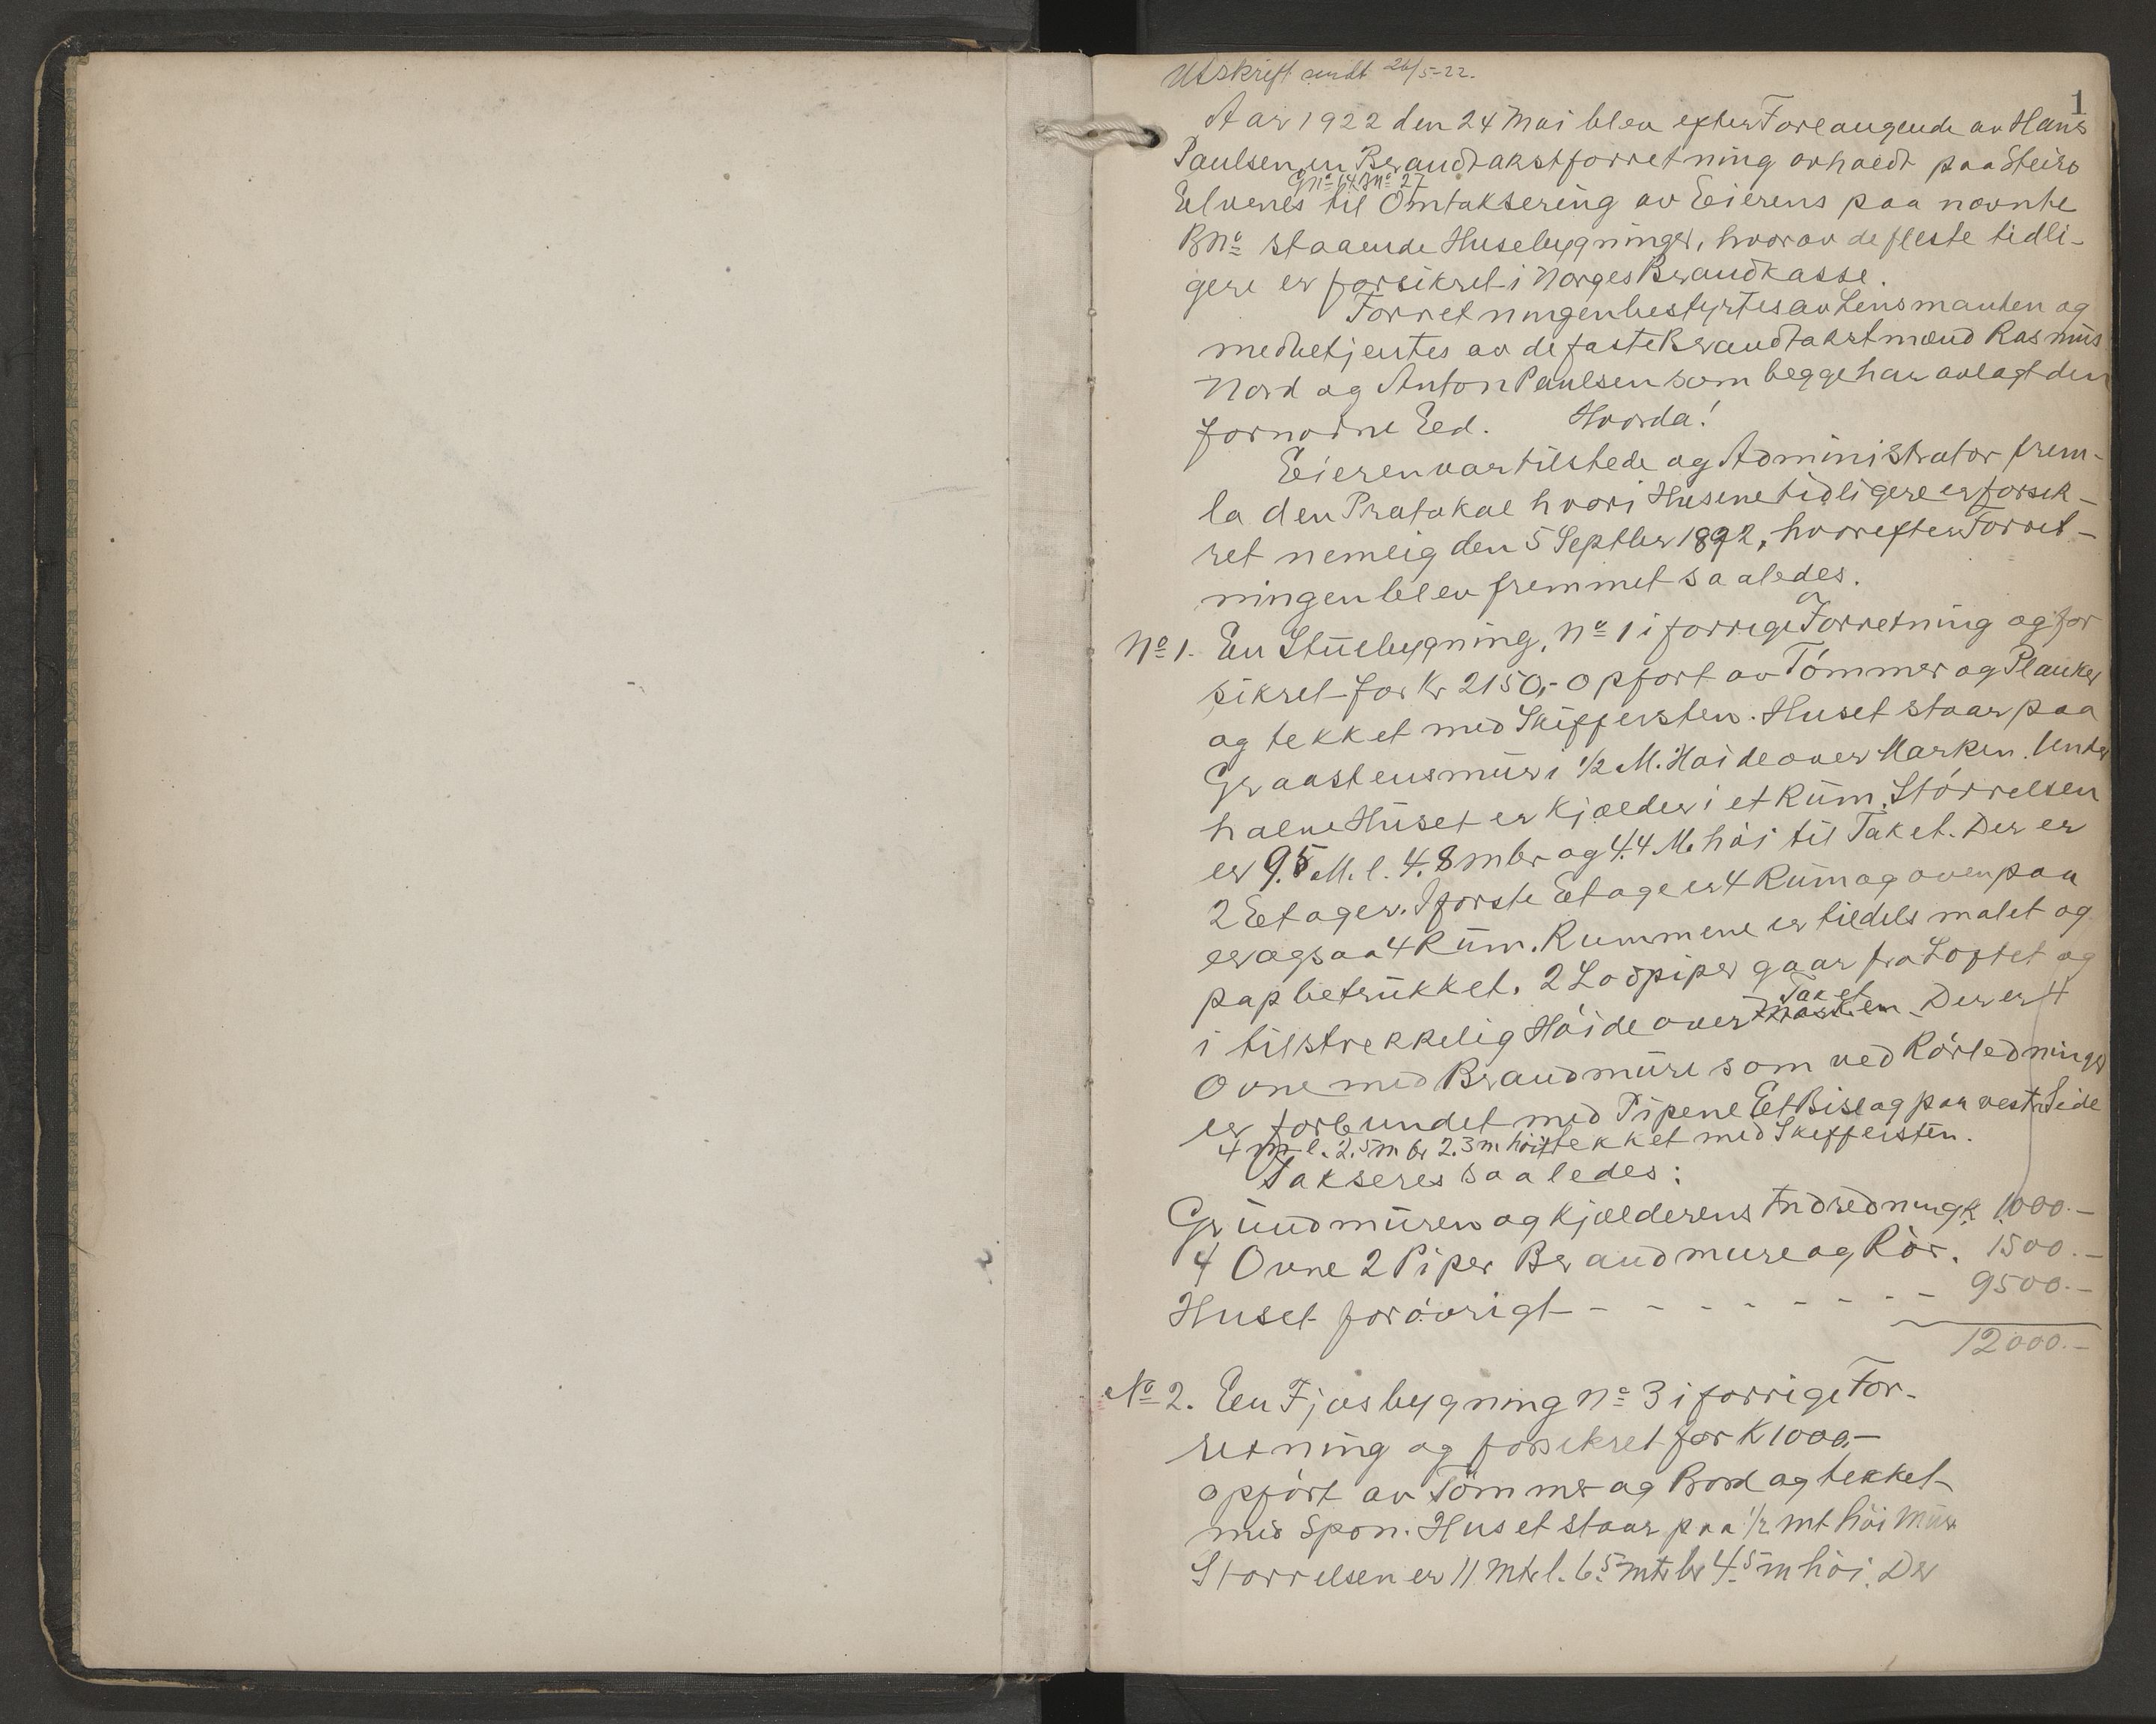 Utskrift sendt 26/5-22.
1
Aar 1922 den 24 Mai blev efter Forlangende av Hans
Paulsen en Brandtakstforretning avholdt paa Steiro
Gno 64 Bno 27
Elvenes til Omtaksering av Eierens paa nævnte
Bno staaende Husebygninger, hvorav de fleste tidli-
gere er forsikret i Norges Brandkasse.
Forretningen bestyrtes av Lensmanden og
medbetjentes av de faste Brandtakstmænd Rasmus
Nord og Anton Paulsen som begge har avlagt den
fornødne Eed. Hvorda!
Eieren var tilstede og Administrator frem-
la den Protokol hvori Husene tidligere er forsik-
ret nemlig den 5 Septbr 1892, hvorefter Forret-
ningen blev fremmet saaledes.
No 1. En Stuebygning, No 1 i forrige Forretning og for
sikret for Kr 2150,- opført av Tømmer og Planker
og tekket med Skiffersten. Huset staar paa
Graastensmur i 1/2 M. Høide over Marken. Under
halve Huset er Kjælder i et Rum. Størrelsen
er 9.5 M. l. 4.8 m br og 4.4 M. høi til Taket. Der er
2 Etager. I første Etage er 4 Rum og ovenpaa
er ogsaa 4 Rum. Rummene er tildels malet og
papbetrukket. 2 Lodpiper gaar fra Loftet og
Taket
i tilstrekkelig Høide over Marken. Der er 4
Ovne med Brandmure som ved Rørledninger
er forbundet med Piperne Et Bislag paa vestr Side
4 m l. 2.5 m br 2.3 m høit tekket med Skiffersten.
Takseres saaledes:
Grundmuren og Kjælderens Indredning K 1000.-
4 Ovne 2 Piper Brandmure og Rør. 1500.-
Huset forøvrigt - - - - - - - - 9500.-
12000.-
No 2. En Fjøsbygning No 3 i forrige For-
retning og forsikret for K 1000.-
opført av Tømmer og Bord og tekket
med Spon. Huset staar paa 1/2 mt høi Mur
Størrelsen er 11 Mtr l. 6.5 mtr br 4.5 m høi. Der